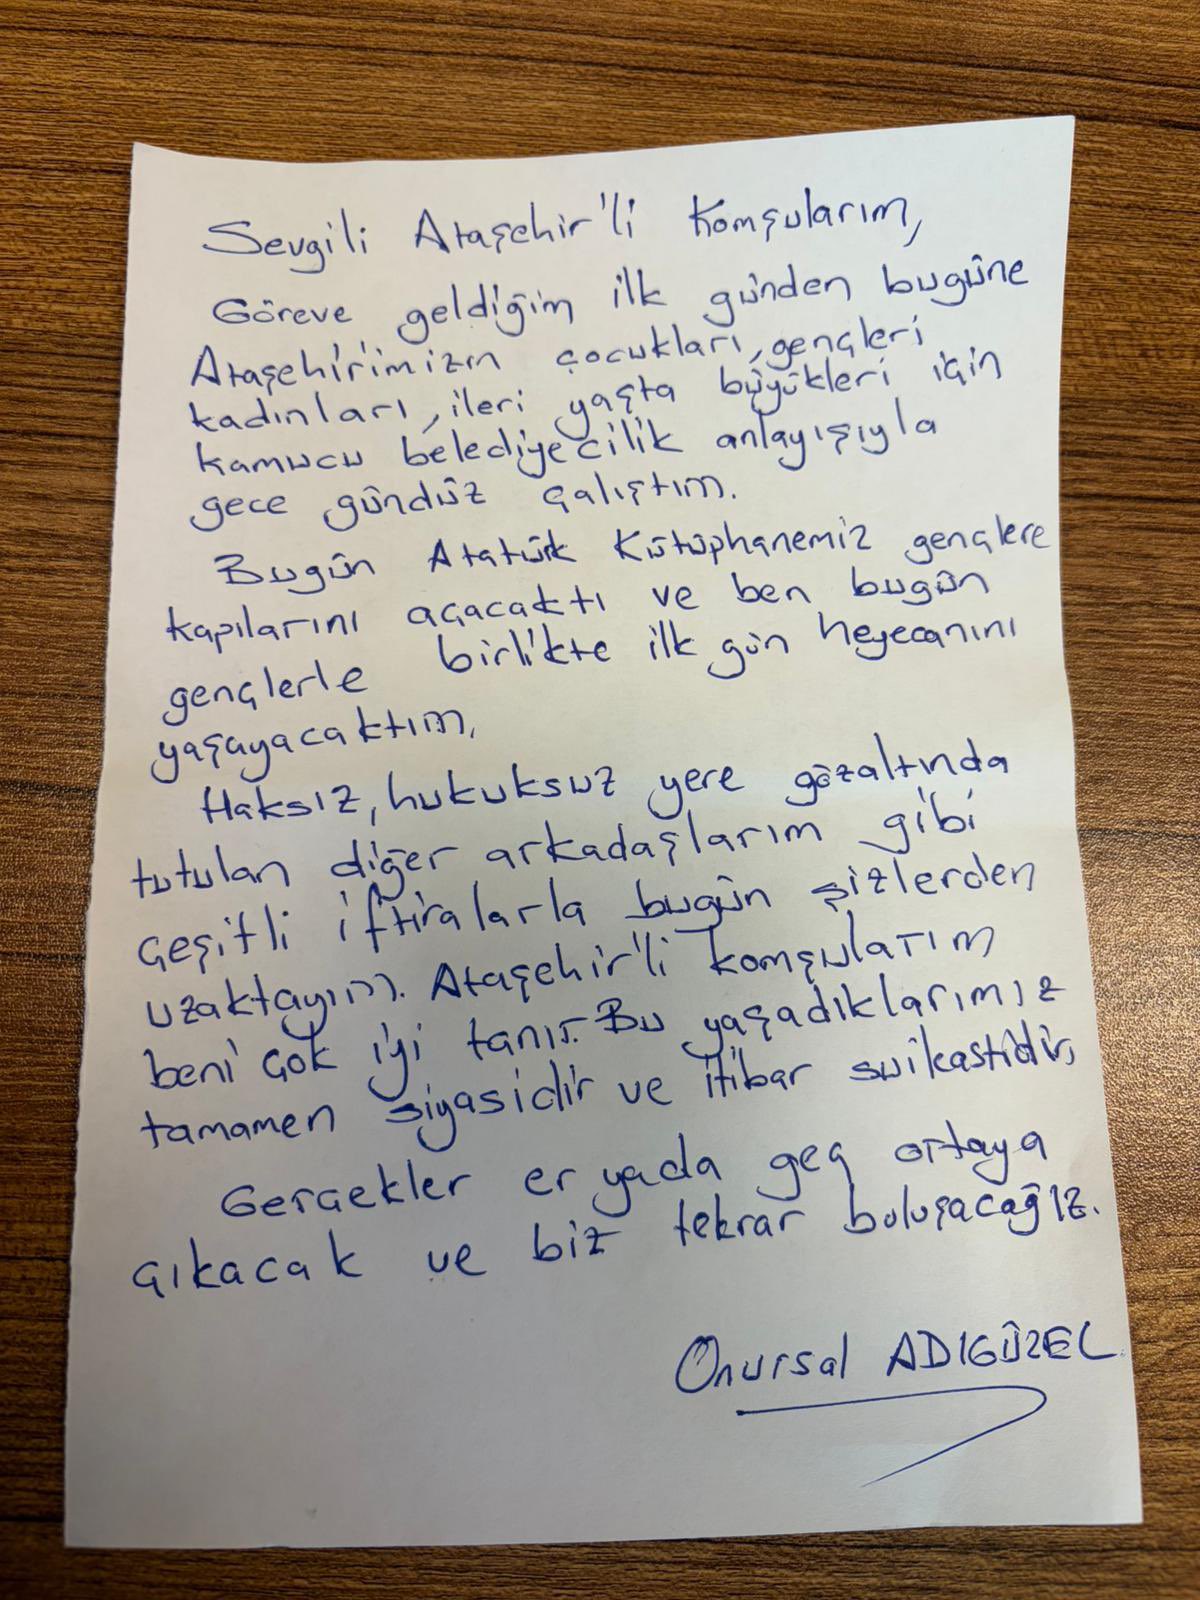 Sevgili Ataşehir'li Komşularım,
Göreve geldiğim ilk günden bugüne
Ataşehirimizin çocukları, gençleri
kadınları, ileri yaşta büyükleri için
kamucu belediyecilik anlayışıyla
gece gündüz çalıştım.
Bugün Atatürk Kütüphanemiz gençlere
kapılarını açacaktı ve ben bugün
gençlerle birlikte ilk gün heyecanını
yaşayacaktım.
Haksız, hukuksuz yere gözaltında
tutulan diğer arkadaşlarım gibi
çeşitli iftiralarla bugün sizlerden
uzaktayım. Ataşehir'li komşularım
beni çok iyi tanır. Bu yaşadıklarımız
tamamen siyasidir ve itibar suikastidir.
Gerçekler er yada geç ortaya
çıkacak ve biz tekrar buluşacağız.
Onursal ADIGÜZEL